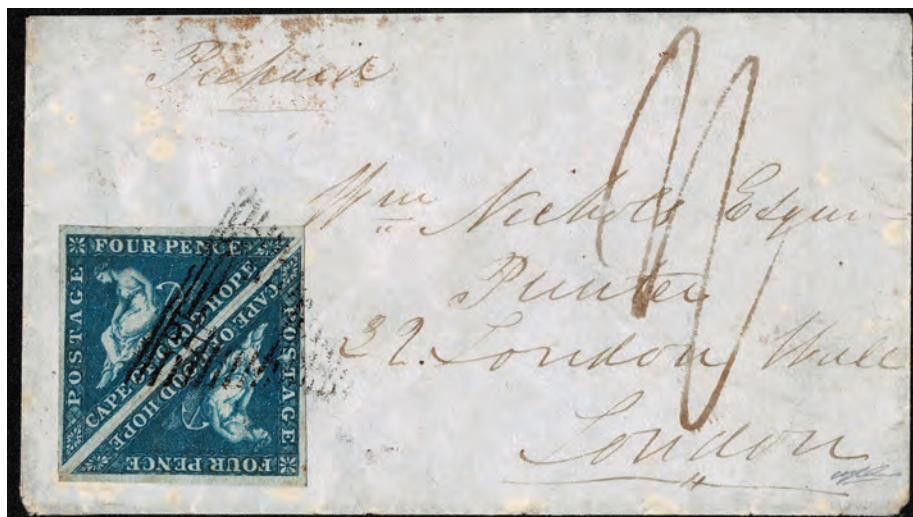 Prepaid
Wm Nichols Esqur
Printer
32. London Wall
London
FOUR PENCE
POSTAGE
CAPE OF GOOD HOPE
CAPE OF GOOD HOPE
POSTAGE
FOUR PENCE